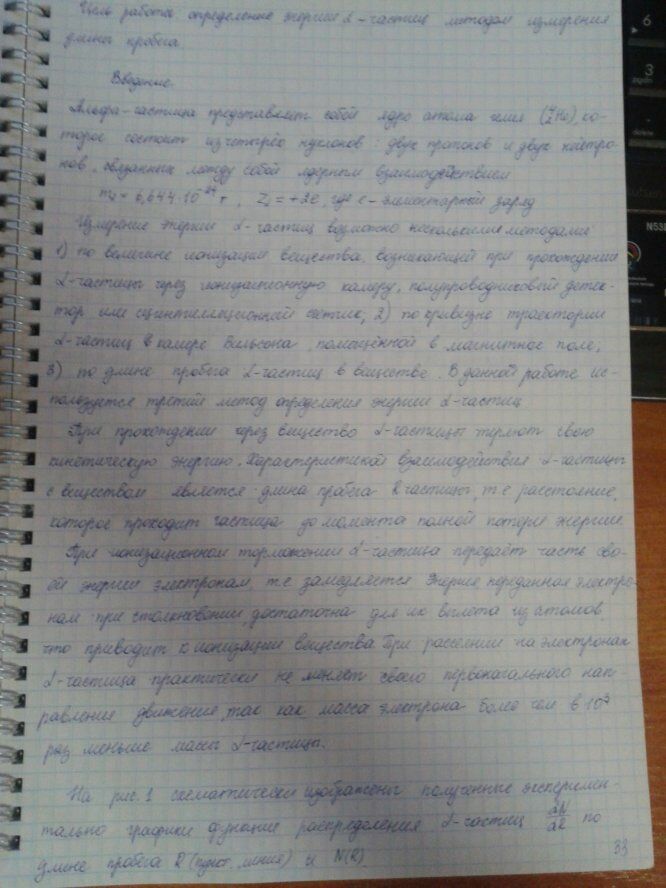 Цель работы: определение энергии α-частиц методом измерения
длины пробега
Введение.
Альфа-частица представляет собой ядро атома гелия (⁴₂He), ко-
торое состоит из четырёх нуклонов: двух протонов и двух нейтро-
нов, связанных между собой ядерным взаимодействием
mα = 6,644·10⁻²⁴ г, Zα = +2e, где e – элементарный заряд
Измерение энергии α-частиц возможно несколькими методами:
1) по величине ионизации вещества, возникающей при прохождении
α-частицы через ионизационную камеру, полупроводниковый детек-
тор или сцинтилляционный счетчик, 2) по кривизне траектории
α-частиц в камере Вильсона, помещённой в магнитное поле,
3) по длине пробега α-частиц в веществе. В данной работе ис-
пользуется третий метод определения энергии α-частиц
При прохождении через вещество α-частицы теряют свою
кинетическую энергию. Характеристикой взаимодействия α-частицы
с веществом является длина пробега R частицы, т.е расстояние,
которое проходит частица до момента полной потери энергии.
При ионизационном торможении α-частица передаёт часть сво-
ей энергии электронам т.е замедляется Энергия, переданная электро-
нам при столкновении, достаточна для их вылета из атомов
что приводит к ионизации вещества При рассеянии на электронах
α-частица практически не меняет своего первоначального нап-
равления движения, так как масса электрона более чем в 10³
раз меньше массы α-частицы.
На рис. 1 схематически изображены полученные эксперимен-
тально графики функции распределения α-частиц dN/dR по
длине пробега R и N(R)
33
6
3
pgdn
delete
N53